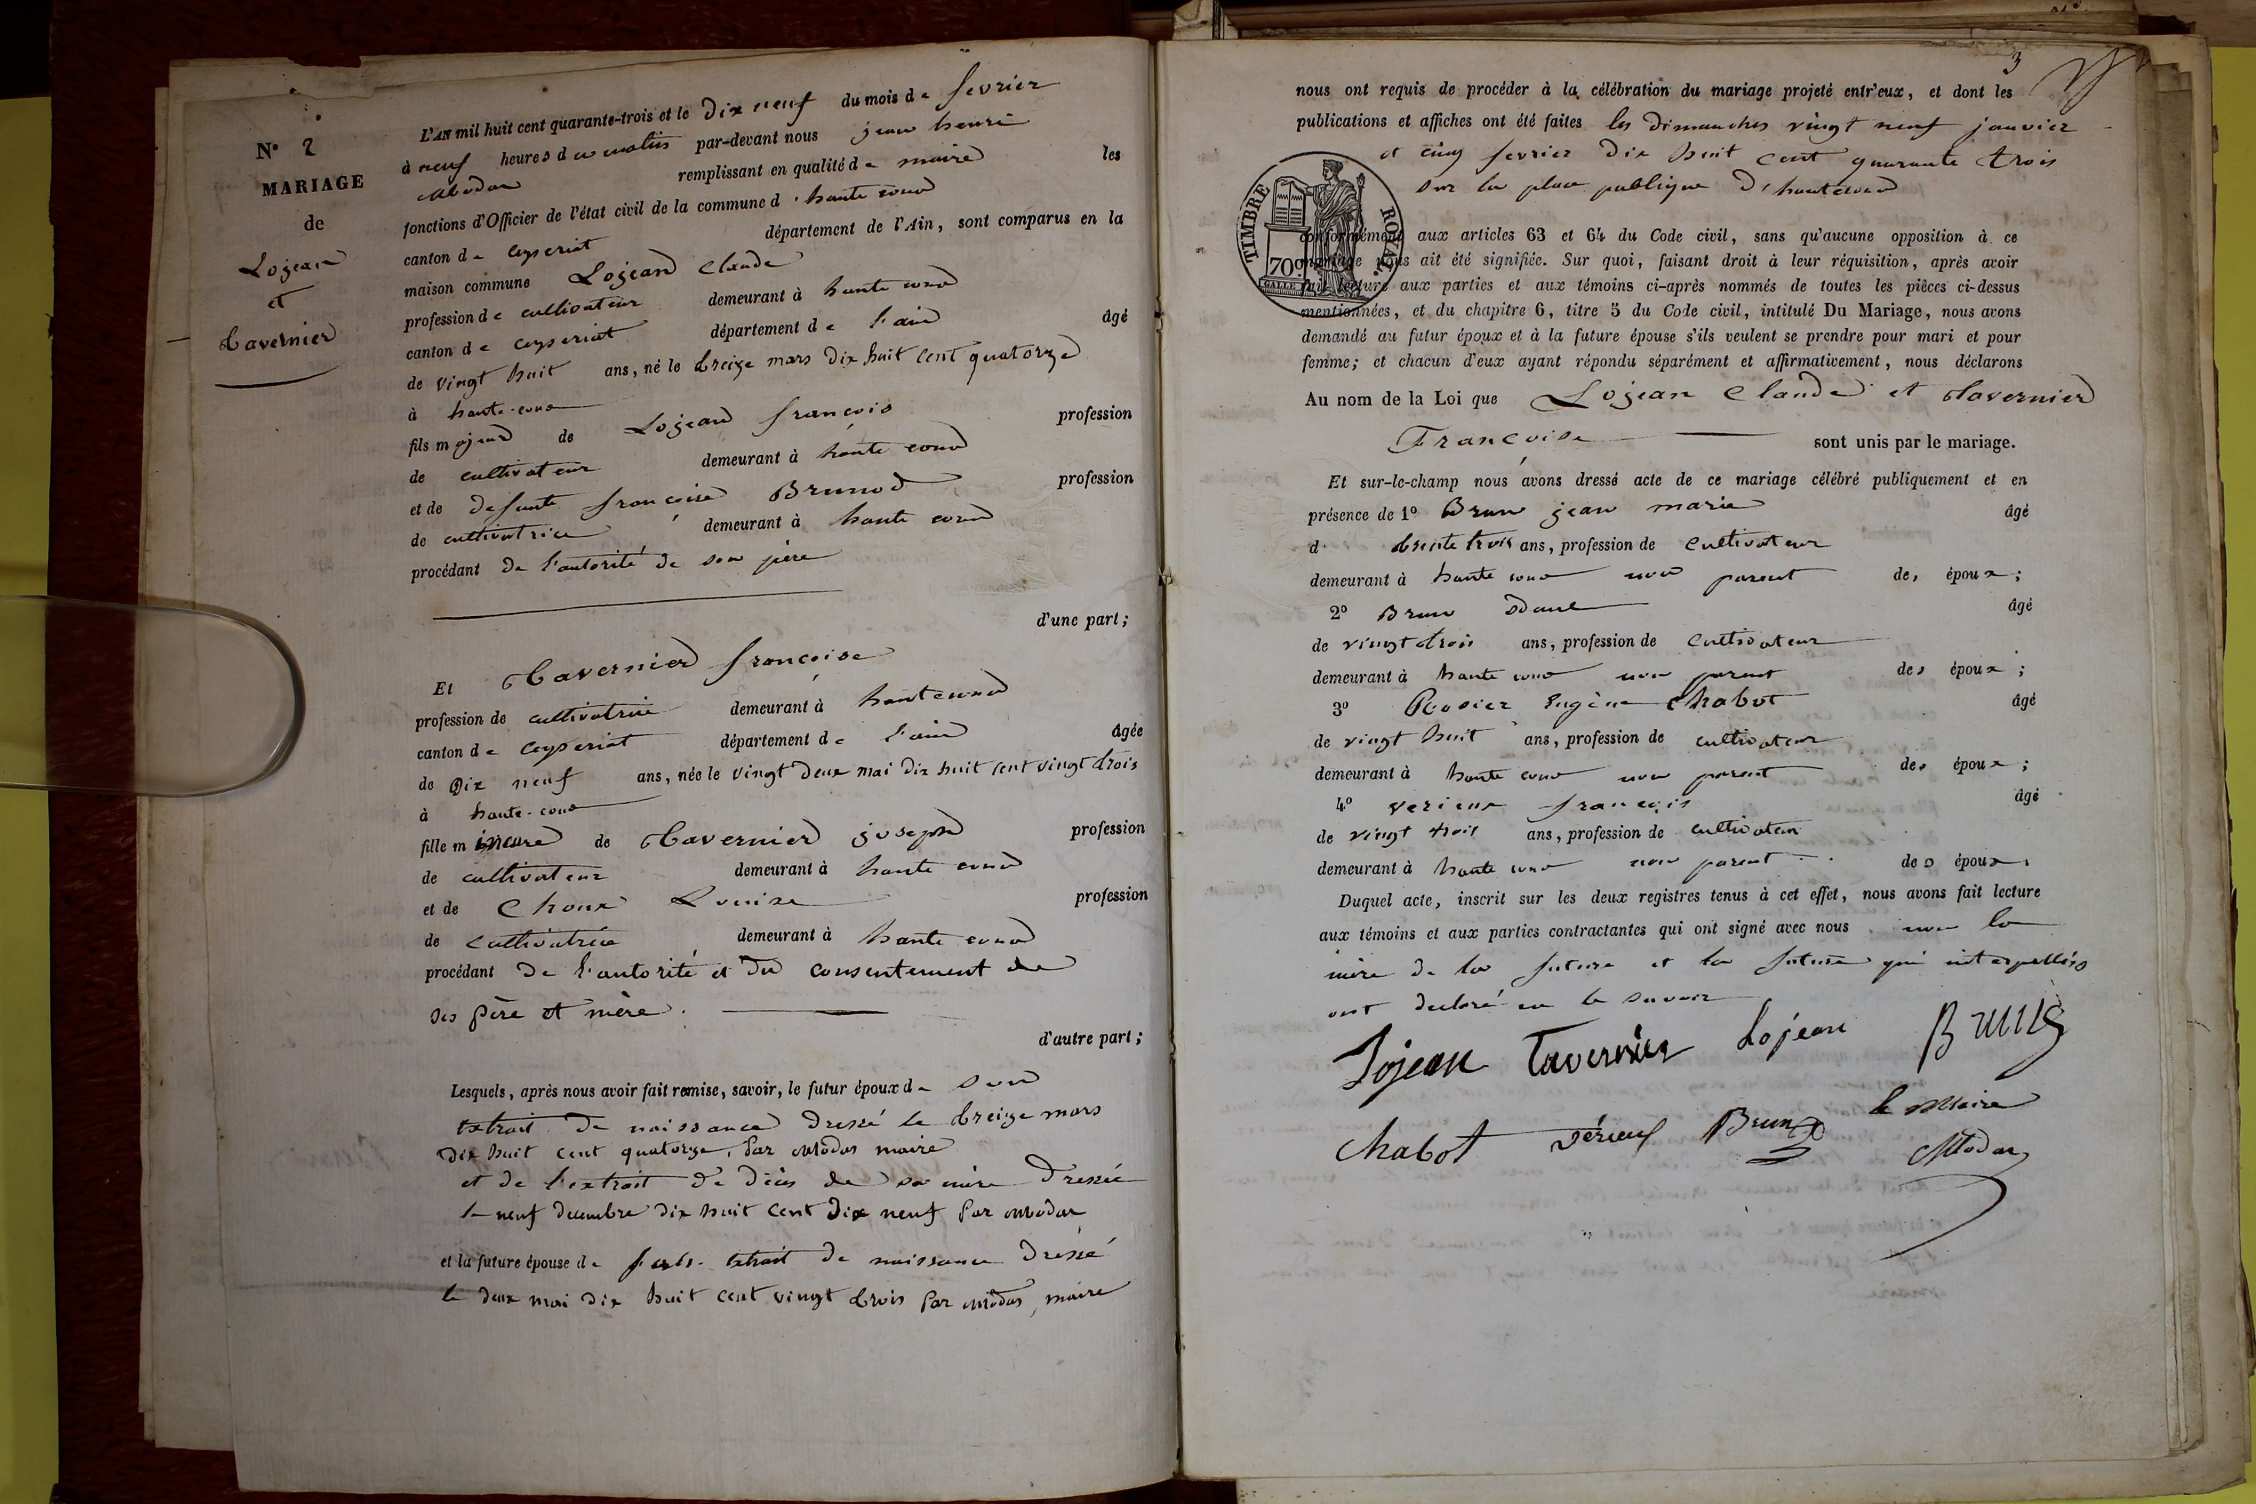 N° 2
MARIAGE
de
Lojean
et
Tavernier
L'AN mil huit cent quarante-trois et le dix neuf du mois de fevrier
à neuf heures du matin par-devant nous jean henri
remplissant en qualité de maire les
fonctions d'Officier de l'état civil de la commune d'haute cour
canton de ceyseriat département de l'Ain, sont comparus en la
maison commune Lojean Claude
profession de cultivateur demeurant à haute cour
canton de ceyseriat département de l'ain âgé
de vingt huit ans, né le treize mars dix huit cent quatorze
à haute-cour
fils majeur de Lojean françois profession
de cultivateur demeurant à haute cour
et de defunte françoise Brunod profession
de cultivatrice demeurant à haute cour
procédant de l'autorité de son père
d'une part;
Et Tavernier françoise
profession de cultivatrice demeurant à hautecour
canton de ceyseriat département de l'ain âgée
de Dix neuf ans, née le vingt deux mai dix huit cent vingt trois
à haute-cour
fille mineure de Tavernier joseph profession
de cultivateur demeurant à haute cour
et de Choux Louise profession
de cultivatrice demeurant à haute cour
procédant de l'autorité et du consentement de
ses père et mère.
d'autre part;
Lesquels, après nous avoir fait remise, savoir, le futur époux de son
extrait de naissance dressé le treize mars
dix huit cent quatorze, par maire
et de l'extrait de décès de sa mère dressée
le neuf decembre dix huit cent dix neuf par
et la future épouse de extrait de naissance dressé
le deux mai dix huit cent vingt trois par maire
3
nous ont requis de procéder à la célébration du mariage projeté entr'eux, et dont les
publications et affiches ont été faites les dimanches vingt neuf janvier
et cinq fevrier dix huit cent quarante trois
sur la place publique d'hautecour
TIMBRE ROYAL.
70c
conformément aux articles 63 et 64 du Code civil, sans qu'aucune opposition à ce
mariage nous ait été signifiée. Sur quoi, faisant droit à leur réquisition, après avoir
fait lecture aux parties et aux témoins ci-après nommés de toutes les pièces ci-dessus
mentionnées, et du chapitre 6, titre 5 du Code civil, intitulé Du Mariage, nous avons
demandé au futur époux et à la future épouse s'ils veulent se prendre pour mari et pour
femme; et chacun d'eux ayant répondu séparément et affirmativement, nous déclarons
Au nom de la Loi que Lojean Claude et Tavernier
Francoise sont unis par le mariage.
Et sur-le-champ nous avons dressé acte de ce mariage célébré publiquement et en
présence de 1° Brun jean marie âgé
d trente trois ans, profession de cultivateur
demeurant à haute cour non parent des époux;
2° Brun âgé
de vingt trois ans, profession de cultivateur
demeurant à haute cour non parent des époux;
3° Eugène Chabot âgé
de vingt huit ans, profession de cultivateur
demeurant à haute cour non parent des époux;
4° verieux françois âgé
de vingt trois ans, profession de cultivateur
demeurant à haute cour non parent des époux.
Duquel acte, inscrit sur les deux registres tenus à cet effet, nous avons fait lecture
aux témoins et aux parties contractantes qui ont signé avec nous non la
mère de la future et la future qui interpellées
ont declaré ne le savoir
Lojean Tavernier Lojean Brun
Chabot vérieux Brun le Maire